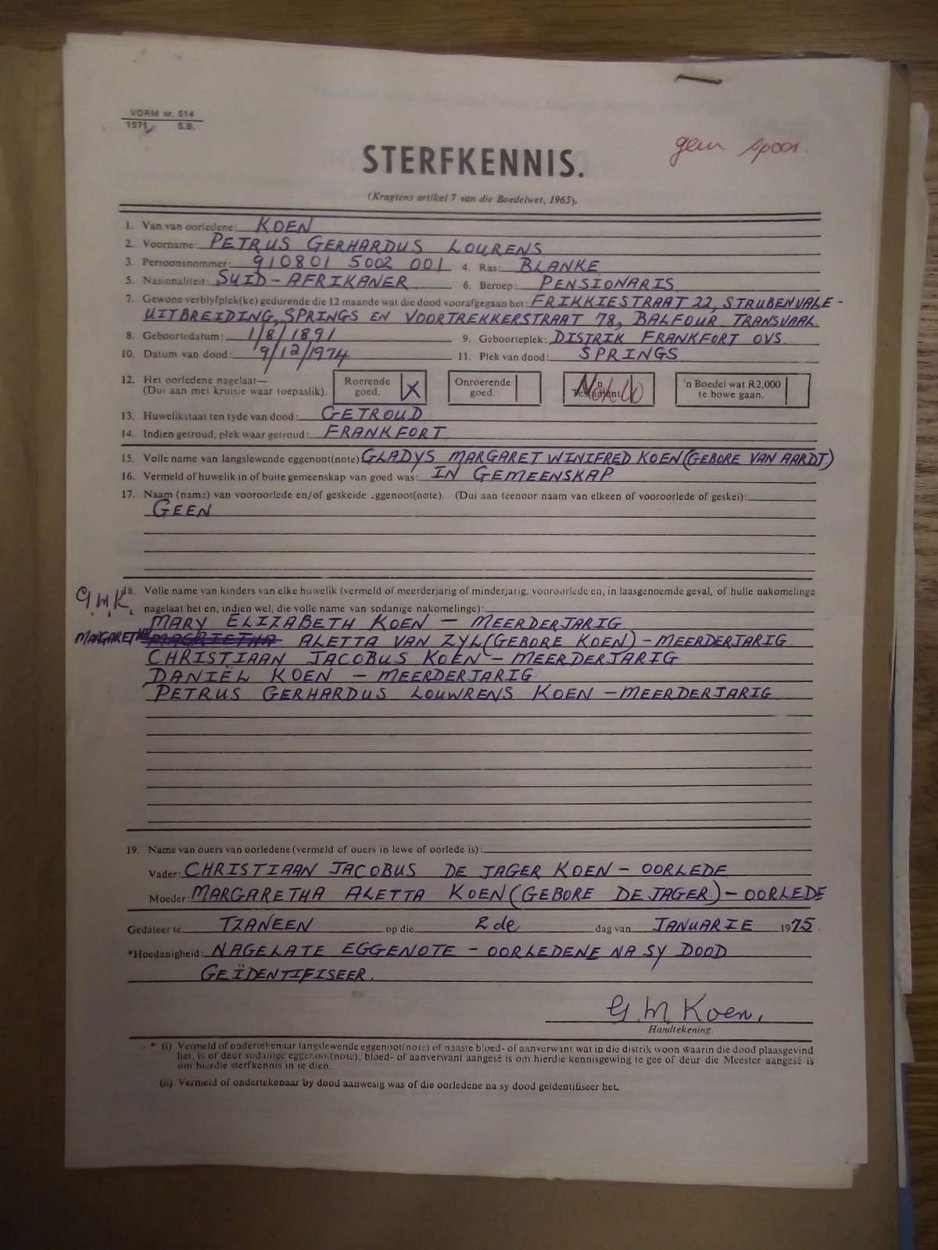 VORM nr. 514
1971 S.B.
geen spoor.
STERFKENNIS.
(Kragtens artikel 7 van die Boedelwet, 1965).
1. Van van oorledene: KOEN
2. Voorname: PETRUS GERHARDUS LOURENS
3. Persoonsnommer: 910801 5002 001 4. Ras: BLANKE
5. Nasionaliteit: SUID-AFRIKANER 6. Beroep: PENSIONARIS
7. Gewone verblyfplek(ke) gedurende die 12 maande wat die dood voorafgegaan het: FRIKKIESTRAAT 22, STRUBENVALE-
UITBREIDING, SPRINGS EN VOORTREKKERSTRAAT 78, BALFOUR TRANSVAAL
8. Geboortedatum: 1/8/1891 9. Geboorteplek: DISTRIK FRANKFORT OVS
10. Datum van dood: 9/12/1974 11. Plek van dood: SPRINGS
12. Het oorledene nagelaat— Roerende goed. X Onroerende goed. 'n Testament 'n Boedel wat R2,000 te bowe gaan.
(Dui aan met kruisie waar toepaslik).
13. Huwelikstaat ten tyde van dood: GETROUD
14. Indien getroud, plek waar getroud: FRANKFORT
15. Volle name van langslewende eggenoot(note) GLADYS MARGARET WINIFRED KOEN (GEBORE VAN AARDT)
16. Vermeld of huwelik in of buite gemeenskap van goed was: IN GEMEENSKAP
17. Naam (name) van vooroorlede en/of geskeide eggenoot(note). (Dui aan teenoor naam van elkeen of vooroorlede of geskei):
GEEN
18. Volle name van kinders van elke huwelik (vermeld of meerderjarig of minderjarig, vooroorlede en, in laasgenoemde geval, of hulle nakomelinge
G.W.K.
nagelaat het en, indien wel, die volle name van sodanige nakomelinge):
MARY ELIZABETH KOEN – MEERDERJARIG
MARGARETHA MAGRIETHA ALETTA VAN ZYL (GEBORE KOEN) – MEERDERJARIG
CHRISTIAAN JACOBUS KOEN – MEERDERJARIG
DANIËL KOEN – MEERDERJARIG
PETRUS GERHARDUS LOUWRENS KOEN – MEERDERJARIG
19. Name van ouers van oorledene (vermeld of ouers in lewe of oorlede is):
Vader: CHRISTIAAN JACOBUS DE JAGER KOEN – OORLEDE
Moeder: MARGARETHA ALETTA KOEN (GEBORE DE JAGER) – OORLEDE
Gedateer te TZANEEN op die 2de dag van JANUARIE 1975
*Hoedanigheid: NAGELATE EGGENOTE – OORLEDENE NA SY DOOD
GEÏDENTIFISEER.
G. M Koen.
Handtekening.
* (i) Vermeld of ondertekenaar langslewende eggenoot(note) of naaste bloed- of aanverwant wat in die distrik woon waarin die dood plaasgevind
het, is of deur sodanige eggenoot(note), bloed- of aanverwant aangesê is om hierdie kennisgewing te gee of deur die Meester aangesê is
om hierdie sterfkennis in te dien.
(ii) Vermeld of ondertekenaar by dood aanwesig was of die oorledene na sy dood geïdentifiseer het.